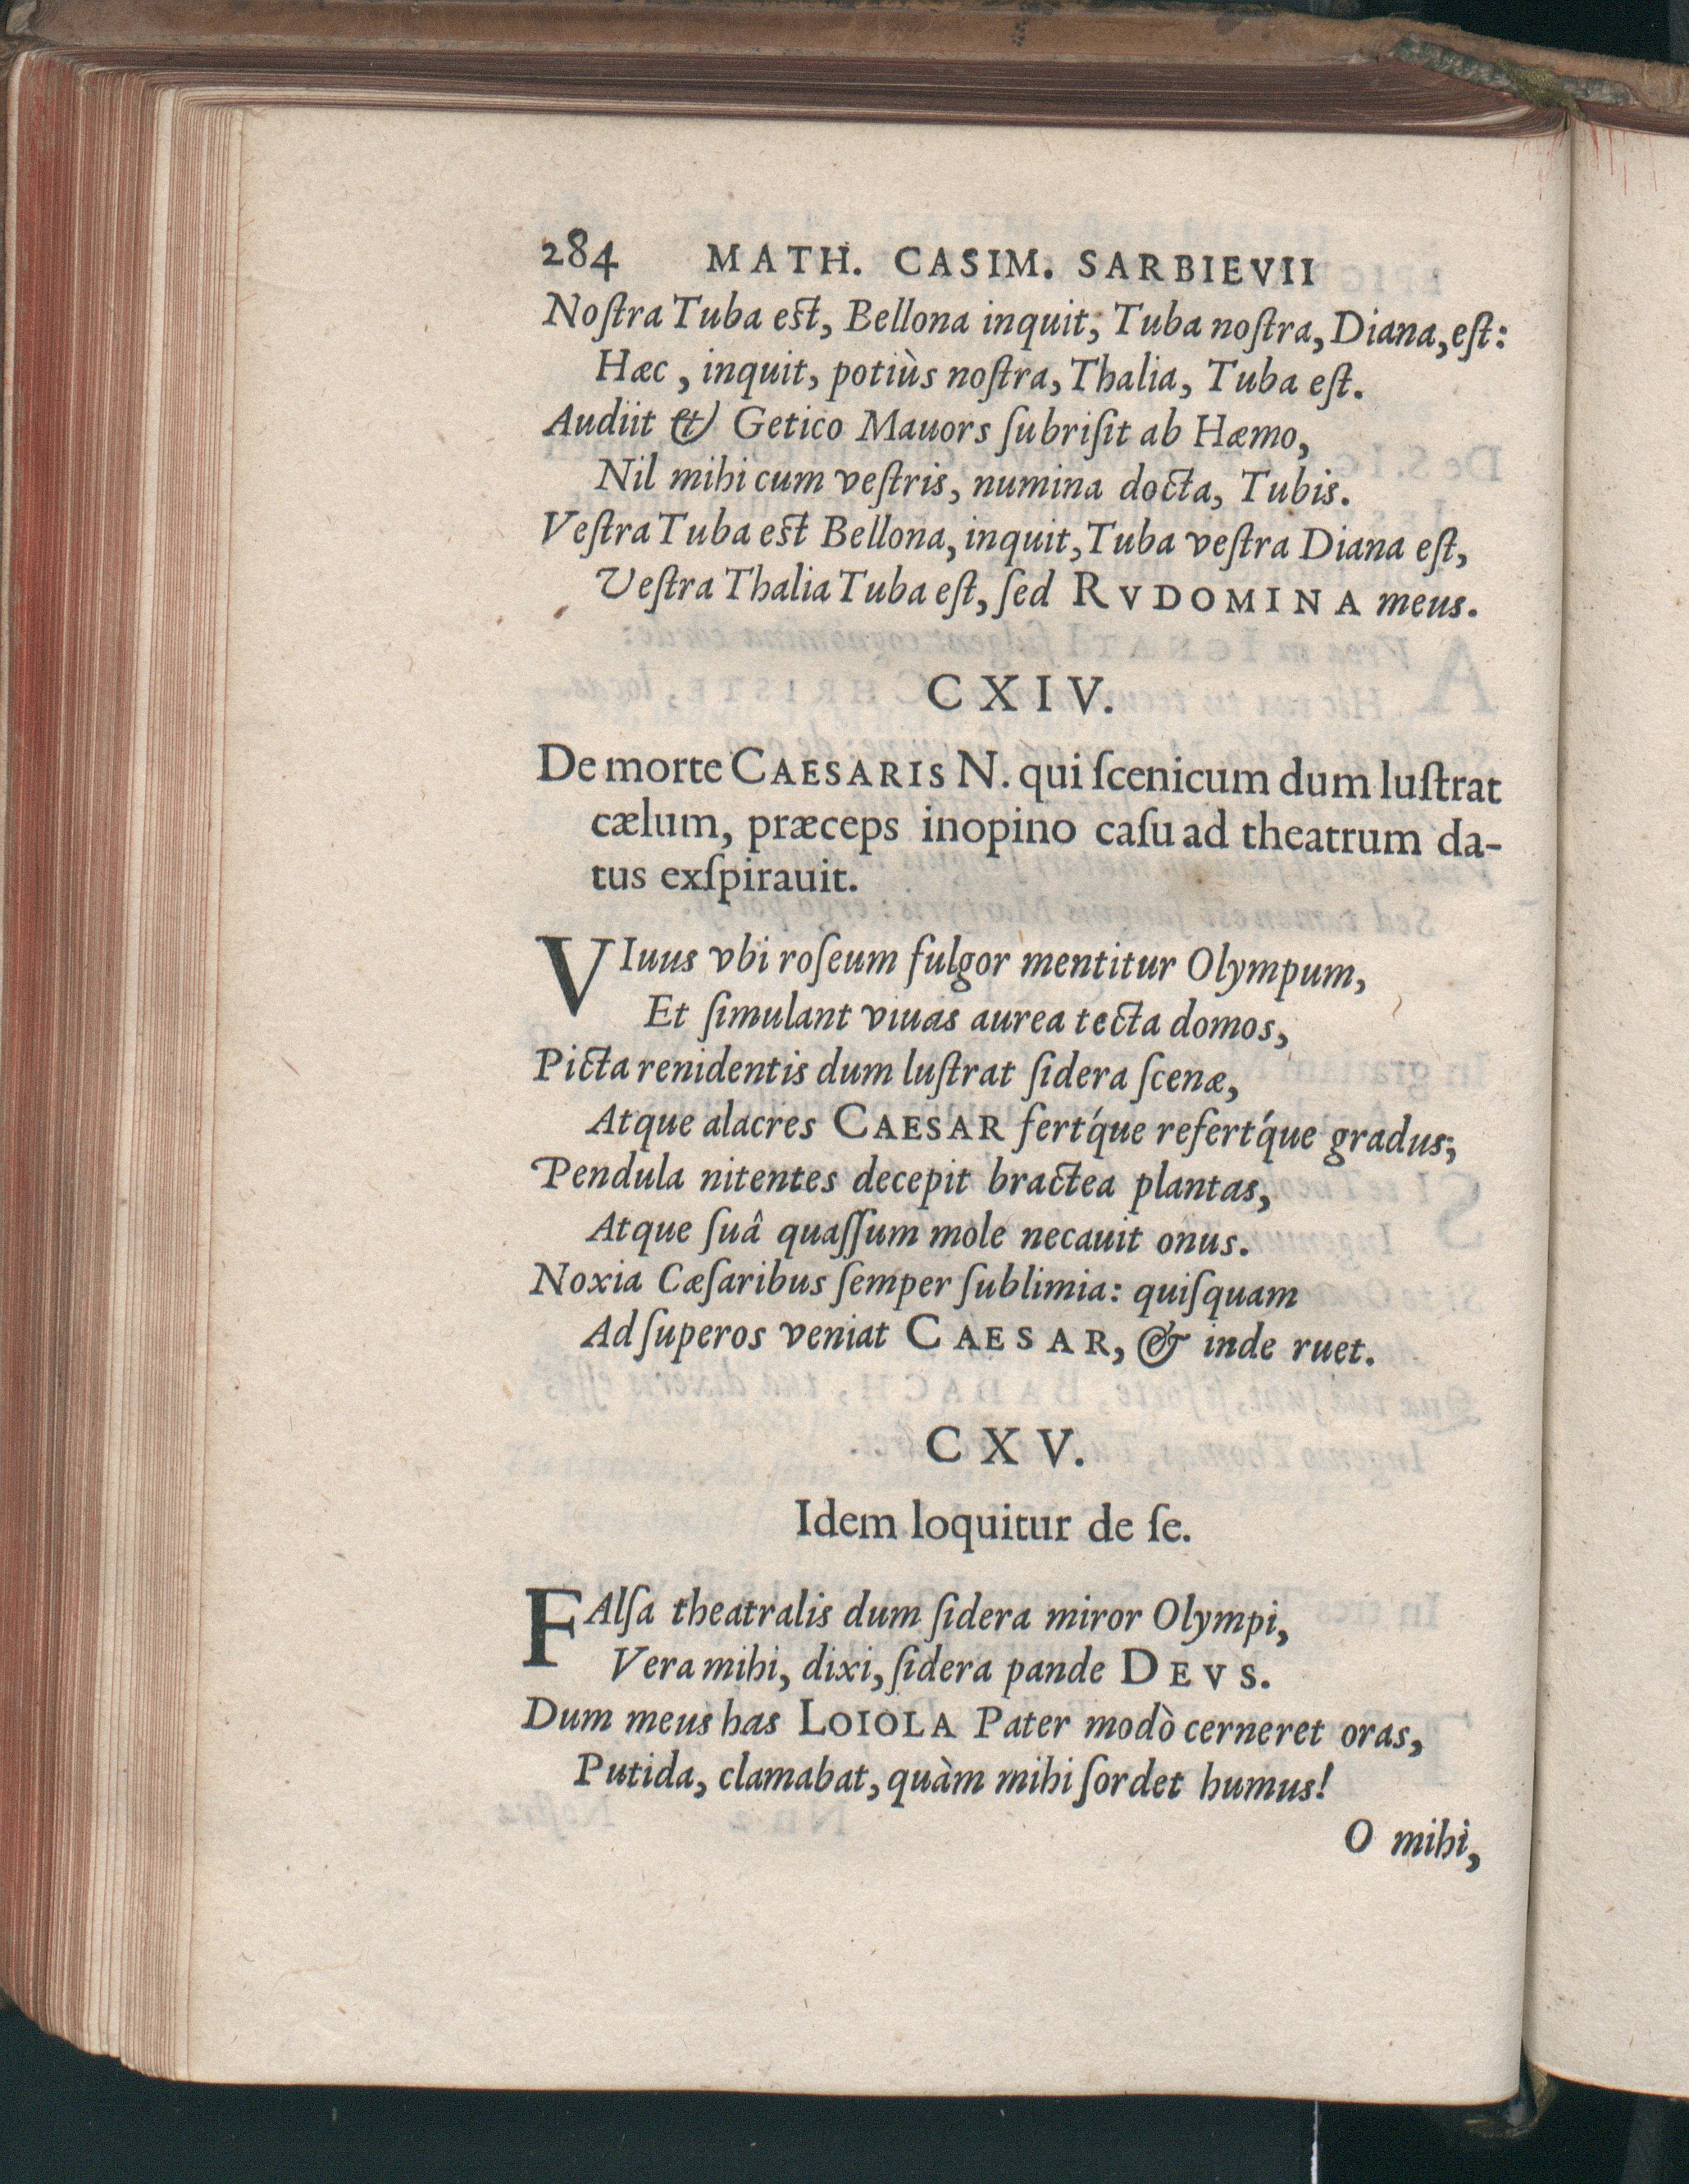 284 MATH. CASIM. SARBIEVII
Noſtra Tuba est, Bellona inquit, Tuba noſtra, Diana, eſt:
Hæc, inquit, potiùs noſtra, Thalia, Tuba eſt.
Audiit & Getico Mauors ſubriſit ab Hæmo,
Nil mihi cum veſtris, numina docta, Tubis.
Veſtra Tuba est Bellona, inquit, Tuba veſtra Diana eſt,
Veſtra Thalia Tuba eſt, ſed RVDOMINA meus.
CXIV.
De morte CAESARIS N. qui ſcenicum dum luſtrat
cælum, præceps inopino caſu ad theatrum da-
tus exſpirauit.
VIuus vbi roſeum fulgor mentitur Olympum,
Et ſimulant viuas aurea tecta domos,
Picta renidentis dum luſtrat ſidera ſcenæ,
Atque alacres CAESAR fertq́ue refertq́ue gradus;
Pendula nitentes decepit bractea plantas,
Atque ſuâ quaſſum mole necauit onus.
Noxia Cæſaribus ſemper ſublimia: quiſquam
Ad ſuperos veniat CAESAR, & inde ruet.
CXV.
Idem loquitur de ſe.
FAlſa theatralis dum ſidera miror Olympi,
Vera mihi, dixi, ſidera pande DEVS.
Dum meus has LOIOLA Pater modò cerneret oras,
Putida, clamabat, quàm mihi ſordet humus!
O mihi,